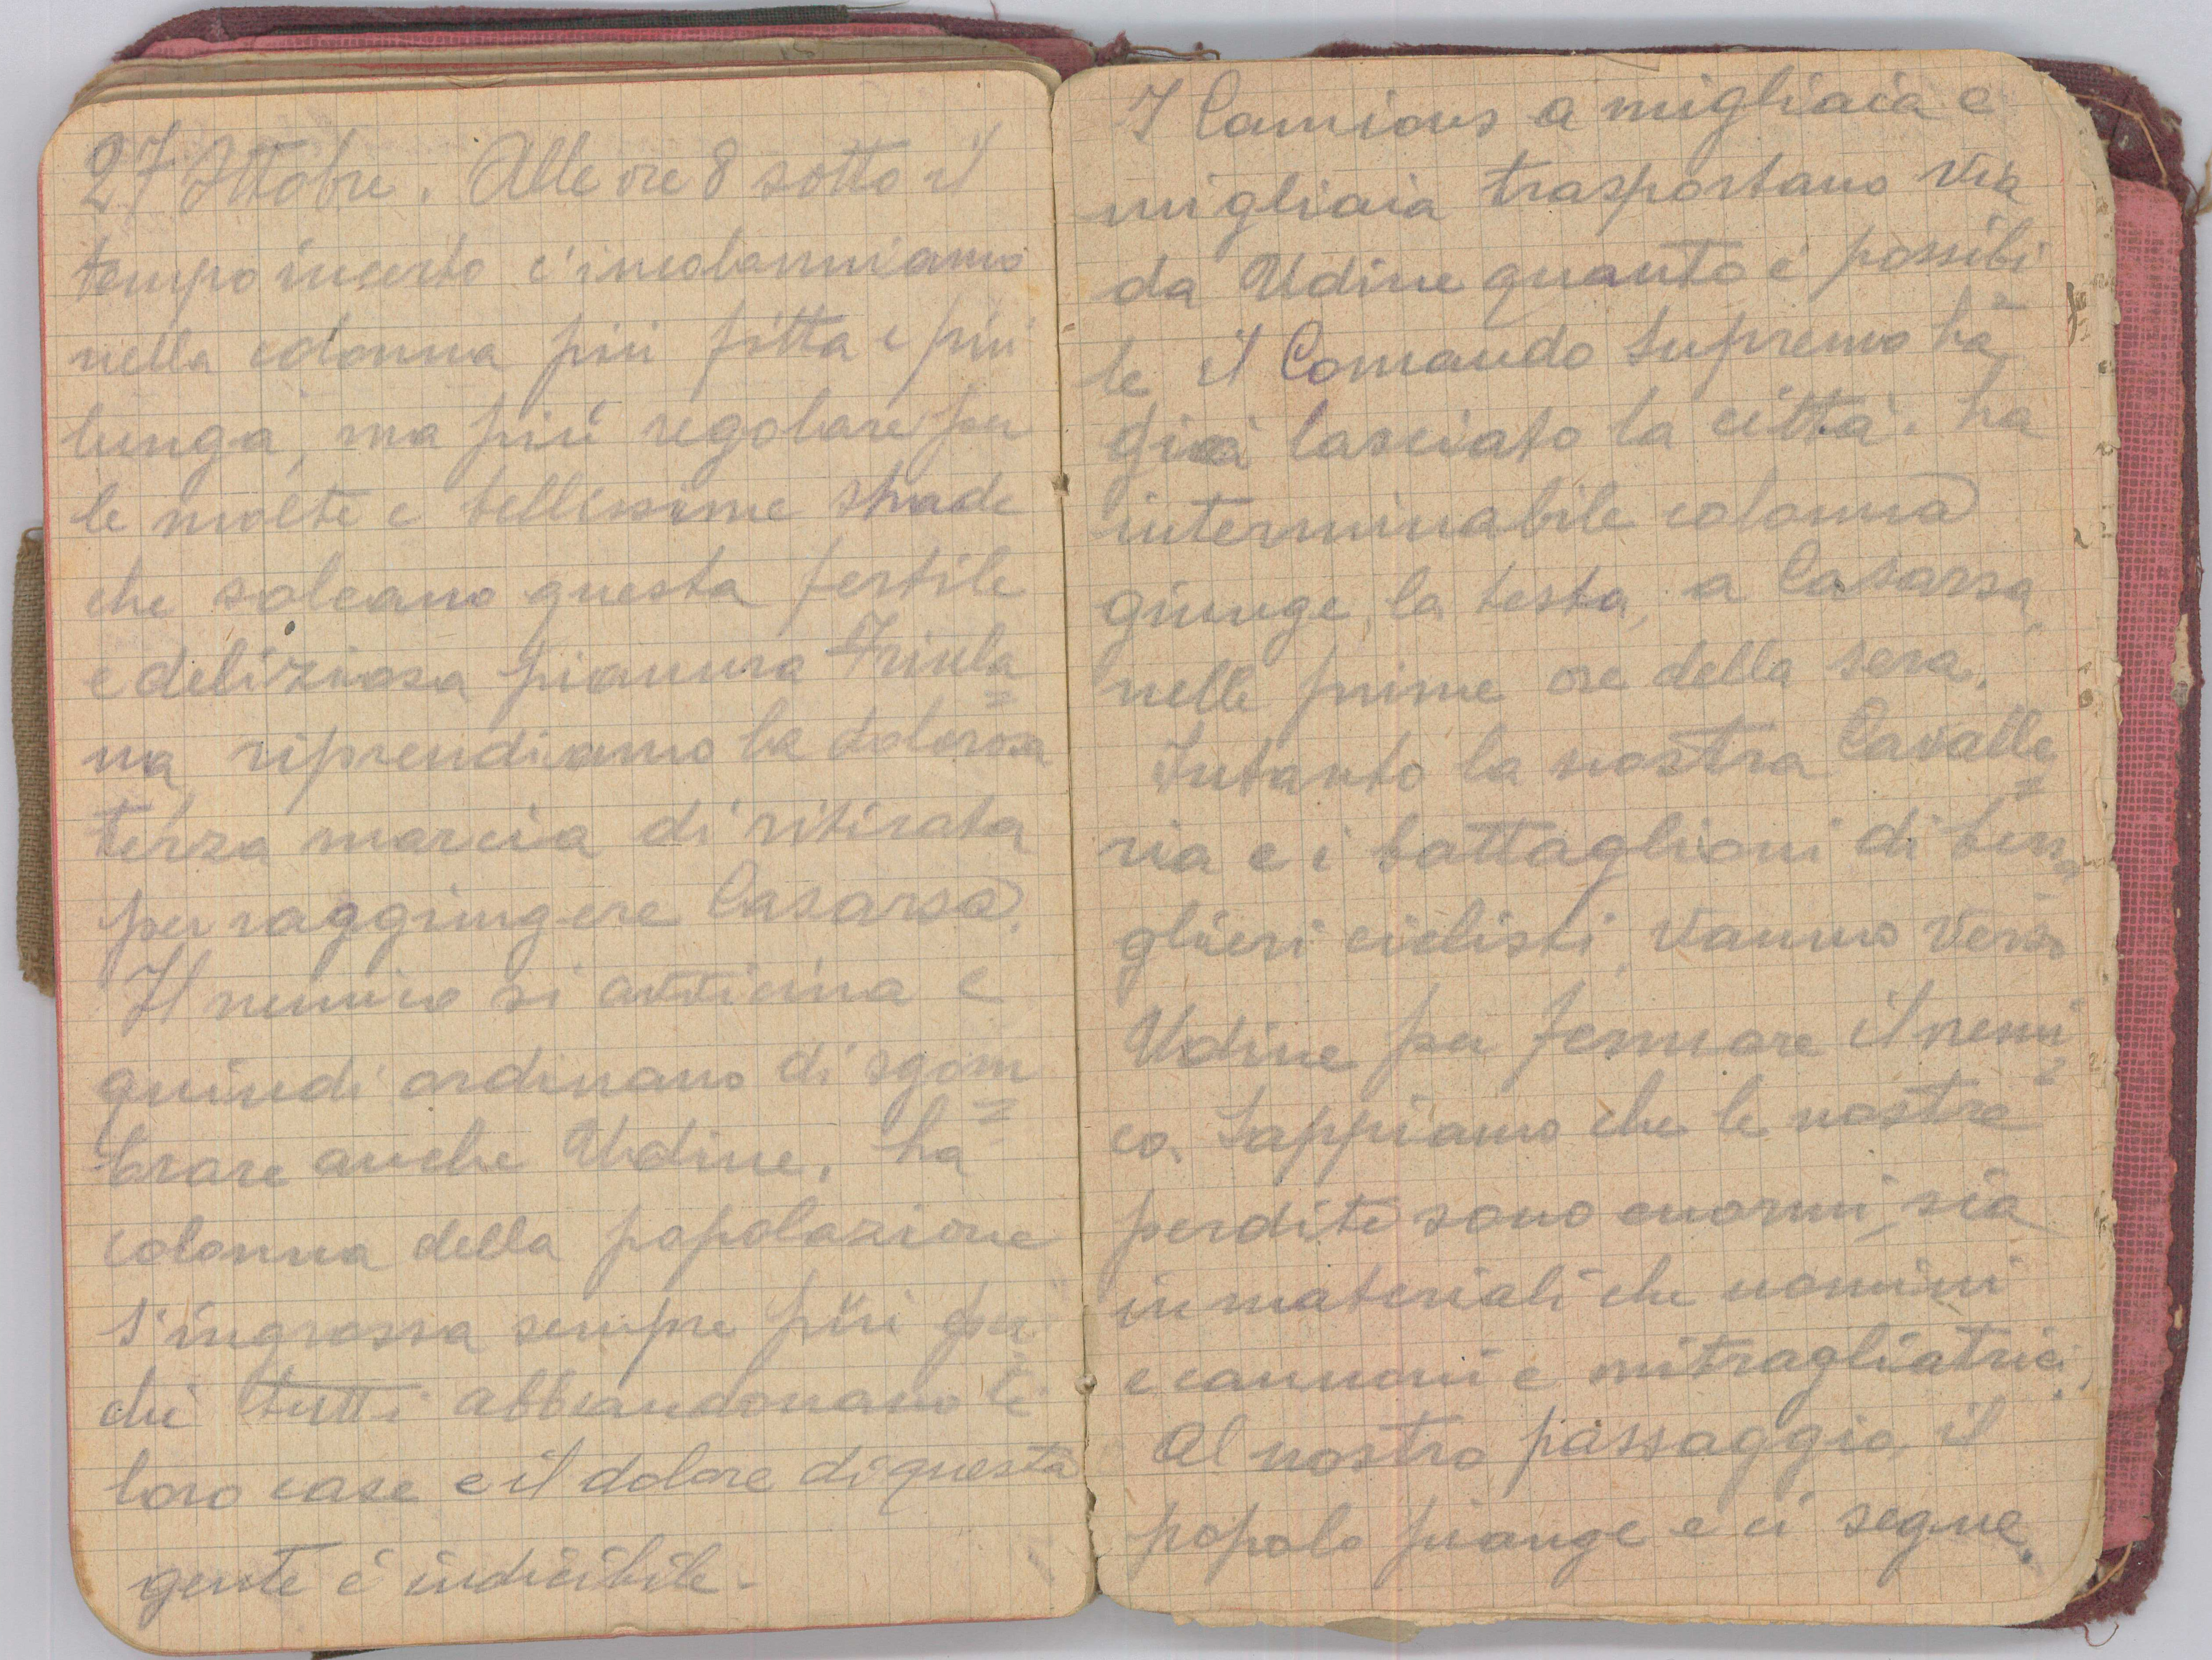 27 Ottobre. Alle ore 8 sotto il
tempo incerto c'incolonniamo
nella colonna più fitta e più
lunga, ma più regolare per
le molte e bellissime strade
che solcano questa fertile
e deliziosa pianura Friula=
na riprendiamo la dolorosa
terza marcia di ritirata
per raggiungere Casarsa.
Il nemico si avvicina e
quindi ordinano di sgom=
brare anche Udine. La
colonna della popolazione
s'ingrossa sempre più per
chè tutti abbandonano le
loro case e il dolore di questa
gente è indicibile.
I Camions a migliaia e
migliaia trasportano via
da Udine quanto è possibi=
le il Comando Supremo ha
già lasciato la città. La
interminabile colonna
giunge, la testa, a Casarsa,
nelle prime ore della sera.
Intanto la nostra Cavalle=
ria e i battaglioni di bersa=
glieri ciclisti, vanno verso
Udine per fermare il nemi=
co. Sappiamo che le nostre
perdite sono enormi, sia
in materiali che uomini
e cannoni e mitragliatrici.
Al nostro passaggio, il
popolo piange e ci segue.